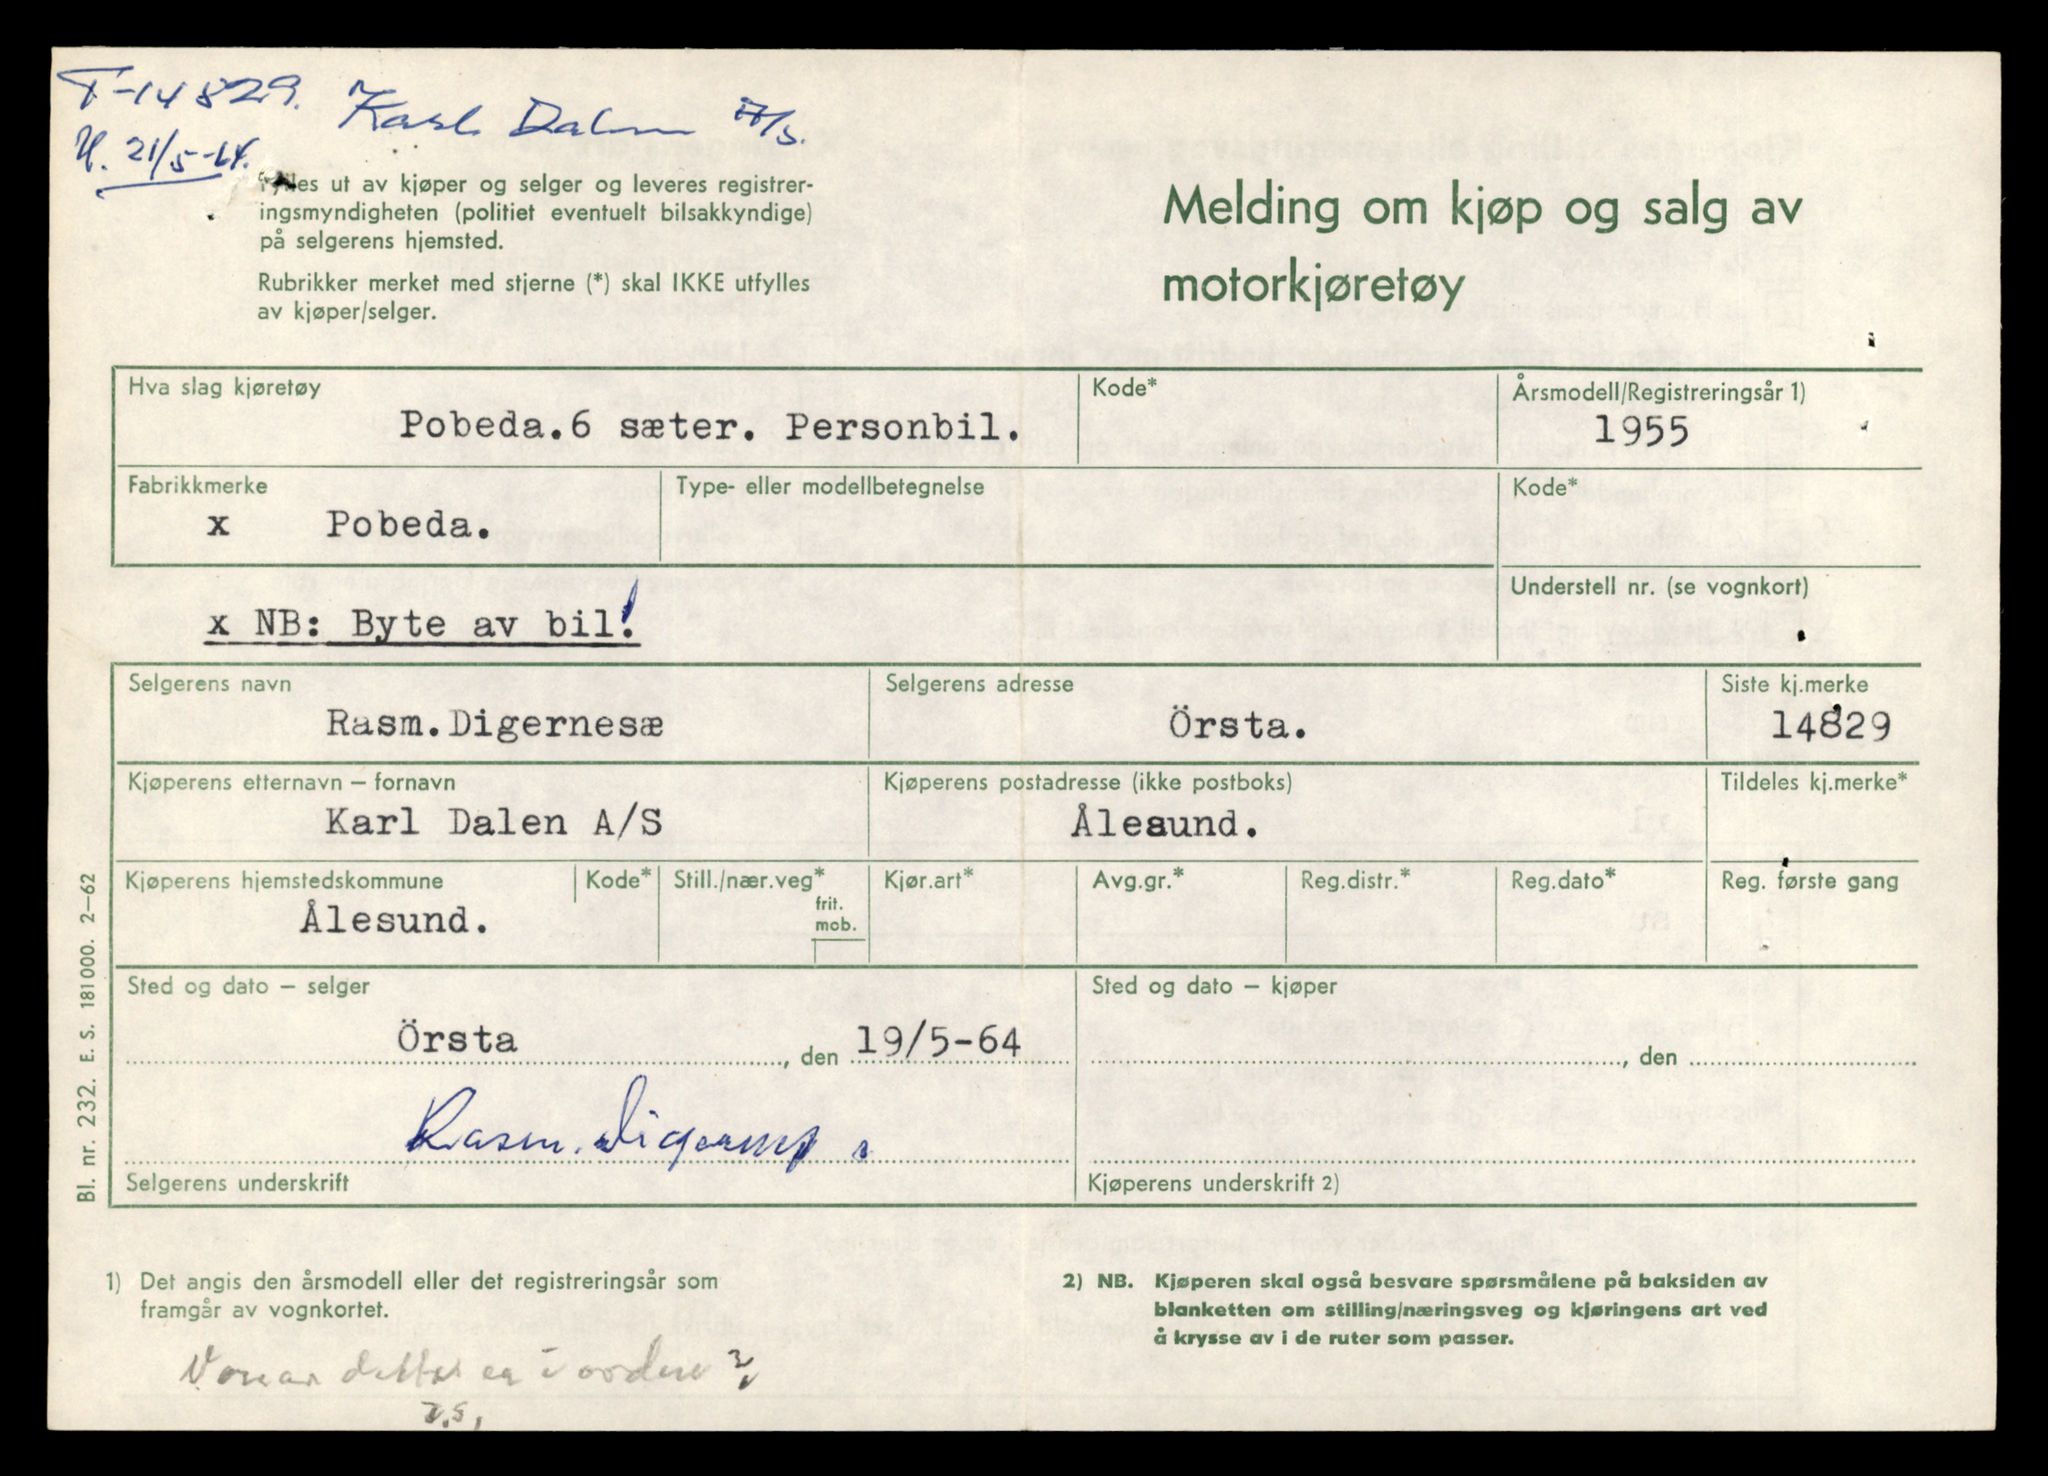 T-14829. Karl Dalen A/S.
H. 21/5-64.
Fylles ut av kjøper og selger og leveres registrer-
ingsmyndigheten (politiet eventuelt bilsakkyndige)
på selgerens hjemsted.
Rubrikker merket med stjerne (*) skal IKKE utfylles
av kjøper/selger.
Melding om kjøp og salg av
motorkjøretøy
Hva slag kjøretøy
Pobeda.6 sæter. Personbil.
Kode*
Årsmodell/Registreringsår 1)
1955
Fabrikkmerke
x Pobeda.
Type- eller modellbetegnelse
Kode*
x NB: Byte av bil!
Understell nr. (se vognkort)
Selgerens navn
Rasm.Digernesæ
Selgerens adresse
Örsta.
Siste kj.merke
14829
Kjøperens etternavn – fornavn
Karl Dalen A/S
Kjøperens postadresse (ikke postboks)
Ålesund.
Tildeles kj.merke*
Kjøperens hjemstedskommune
Ålesund.
Kode*
Still./nær.veg*
frit.
mob.
Kjør.art*
Avg.gr.*
Reg.distr.*
Reg.dato*
Reg. første gang
Sted og dato – selger
Örsta , den 19/5-64
Rasm. Digernes
Selgerens underskrift
Sted og dato – kjøper
, den
Kjøperens underskrift 2)
Bl. nr. 232. E. S. 181 000. 2–62
1) Det angis den årsmodell eller det registreringsår som
framgår av vognkortet.
2) NB. Kjøperen skal også besvare spørsmålene på baksiden av
blanketten om stilling/næringsveg og kjøringens art ved
å krysse av i de ruter som passer.
Vonar dette er i orden?